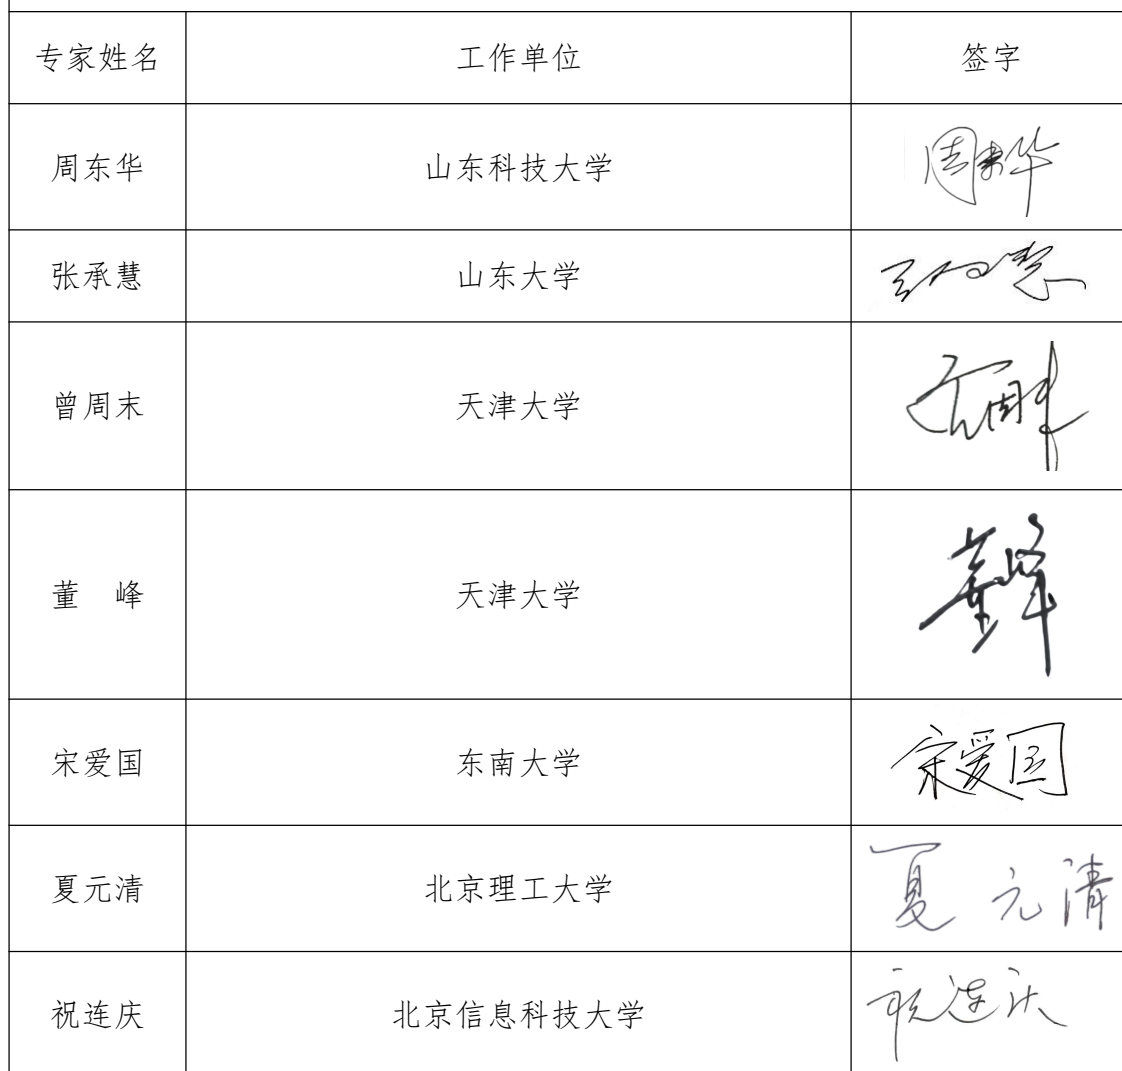 专家姓名 工作单位 签字
周东华 山东科技大学 周东华
张承慧 山东大学 张承慧
曾周末 天津大学 曾周末
董 峰 天津大学 董峰
宋爱国 东南大学 宋爱国
夏元清 北京理工大学 夏元清
祝连庆 北京信息科技大学 祝连庆